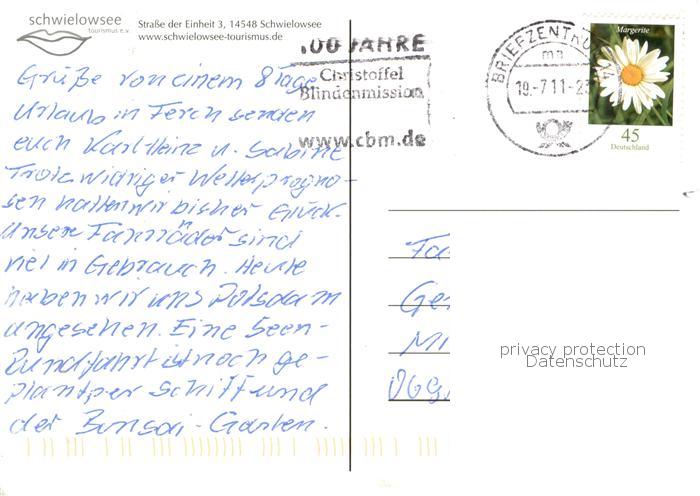 schwielowsee
tourismus e.v.
Straße der Einheit 3, 14548 Schwielowsee
www.schwielowsee-tourismus.de
100 JAHRE
Christoffel
Blindenmission
www.cbm.de
BRIEFZENTRUM
ma
19.-7.11-23
Margerite
45
Deutschland
Grüße von einem 8 Tage
Urlaub in Ferch senden
euch Karl Heinz u. Sabine
Trotz widriger Wetterprogno-
sen hatten wir bisher Glück.
Unsere Fahrräder sind
viel in Gebrauch. Heute
haben wir uns Potsdam
angesehen. Eine Seen-
Rundfahrt ist noch ge-
plant per Schiff und
der Bonsai-Garten.
Fa
Ge
Mi
privacy protection
Datenschutz